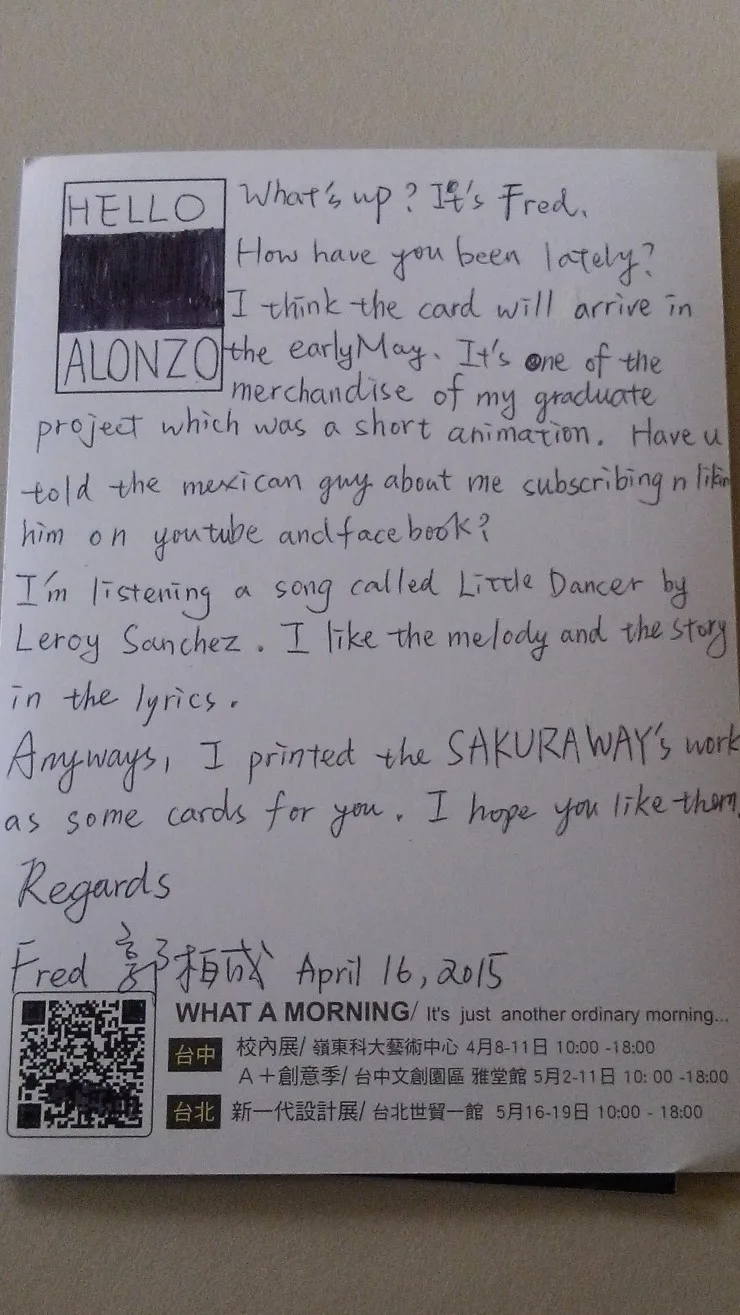 HELLO
ALONZO
What's up? It's Fred.
How have you been lately?
I think the card will arrive in
the early May. It's one of the
merchandise of my graduate
project which was a short animation. Have u
told the mexican guy about me subscribing n likin
him on youtube and facebook?
I'm listening a song called Little Dancer by
Leroy Sanchez. I like the melody and the story
in the lyrics.
Anyways, I printed the SAKURAWAY's work
as some cards for you. I hope you like them.
Regards
Fred 郭柏成 April 16, 2015
WHAT A MORNING/ It's just another ordinary morning...
台中 校內展/ 嶺東科大藝術中心 4月8-11日 10:00 -18:00
A+創意季/ 台中文創園區 雅堂館 5月2-11日 10: 00 -18:00
台北 新一代設計展/ 台北世貿一館 5月16-19日 10:00 - 18:00